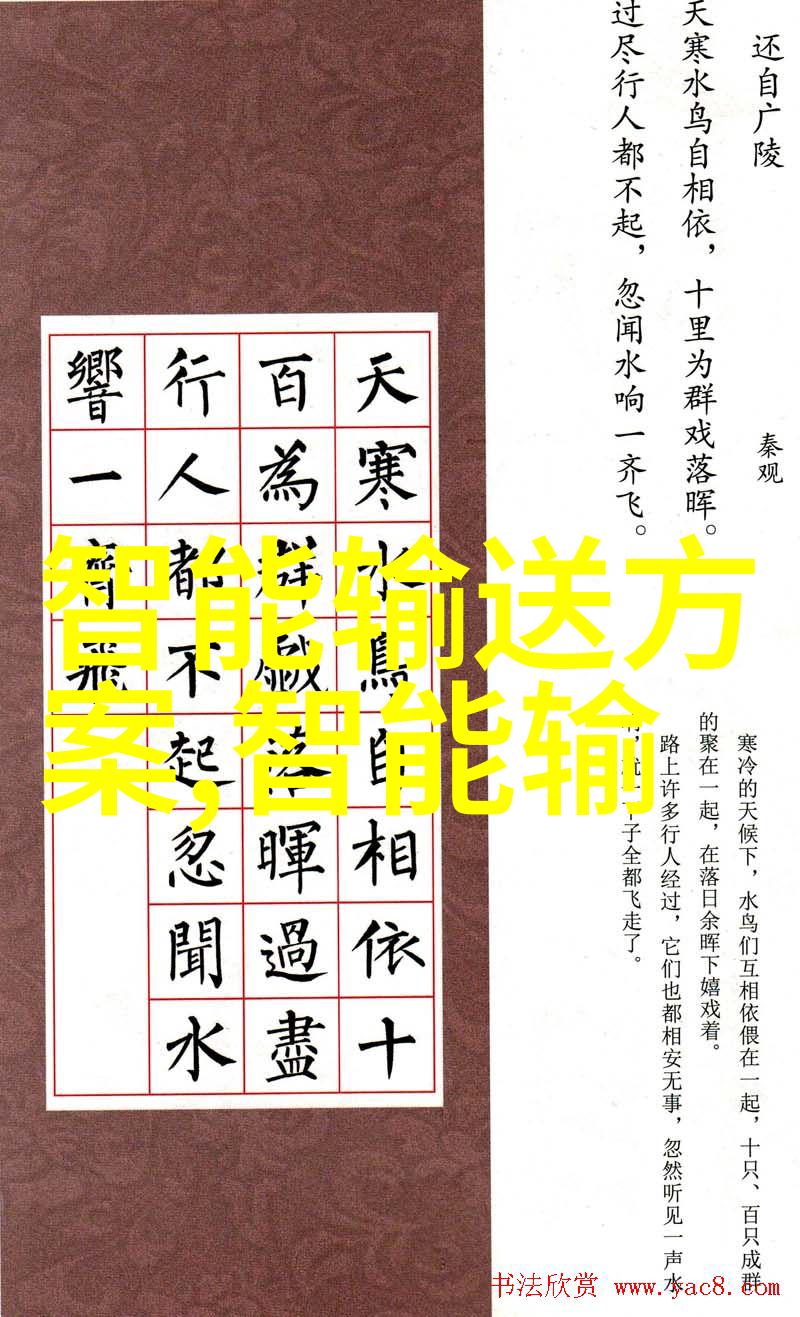 还自广陵
秦观
天寒水鸟自相依，十里为群戏落晖。
过尽行人都不起，忽闻水响一齐飞。
寒冷的天候下，水鸟们互相依偎在一起，十只、百只成群
的聚在一起，在落日余晖下嬉戏着。
路上许多行人经过，它们也都相安无事，忽然听见一声水
子全都飞走了。
天寒水鳥自相依十
百為群戲落暉過盡
行人都不起忽聞水
響一齊飛
智能输送方
案,智能输
书法欣赏 www.yac8.com